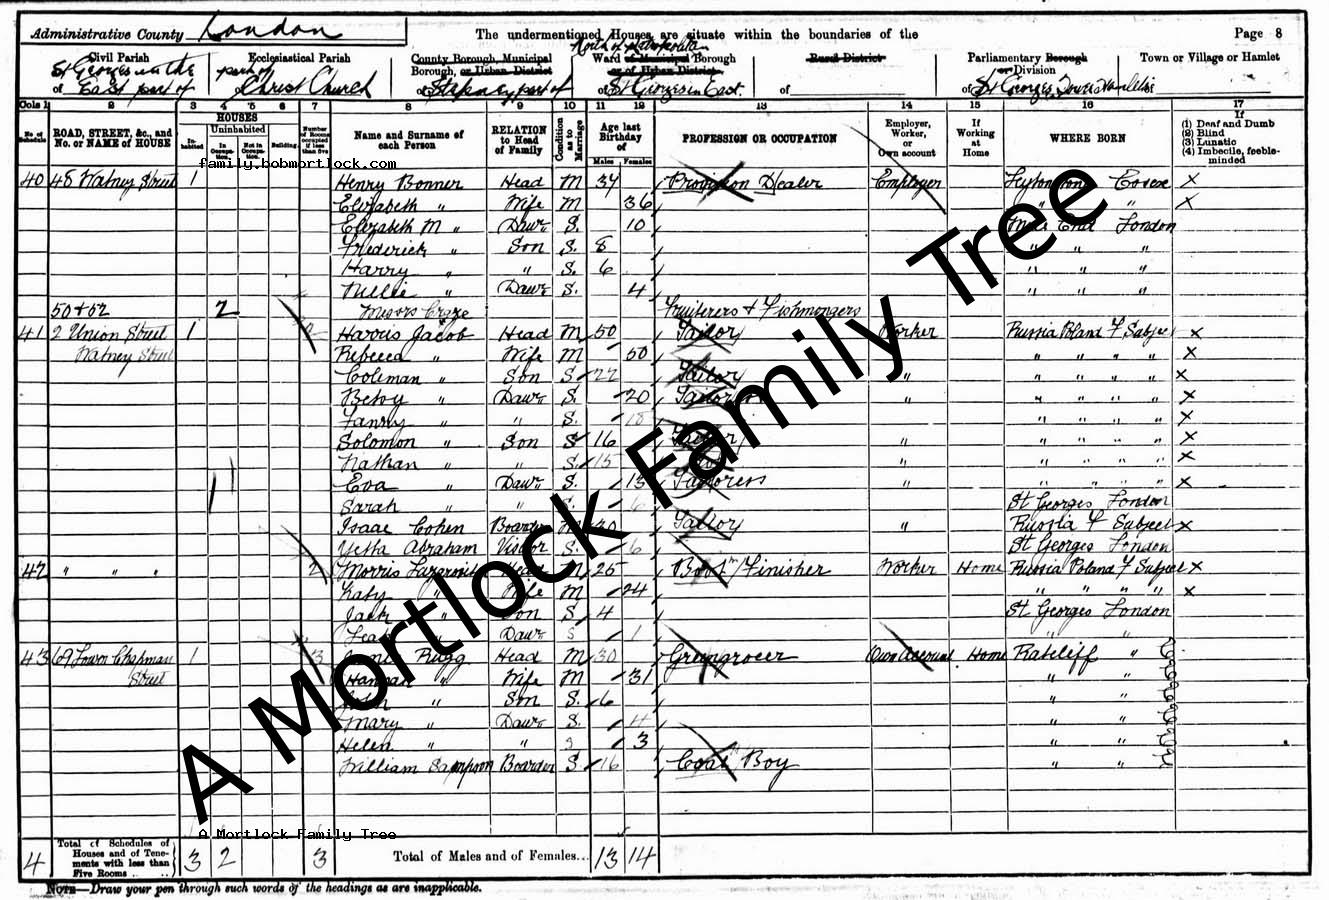 Administrative County London
The undermentioned Houses are situate within the boundaries of the
Page 8
Civil Parish
of St Georges in the East part of
Ecclesiastical Parish
part of
of Christ Church
County Borough, Municipal
Borough, or Urban District
of Stepney part of
Ward of Municipal Borough
or of Urban District
of St Georges in East
Rural District
of
Parliamentary Borough
or Division
of St Georges, Tower Hamlets
Town or Village or Hamlet
of
Cols 1 2 3 4 5 6 7 8 9 10 11 12 13 14 15 16 17
No of Schedule
ROAD, STREET, &c., and No. or NAME of HOUSE
HOUSES
Inhabited
Uninhabited
In Occupation
Not in Occupation
Building
Number of Rooms occupied if less than five
Name and Surname of each Person
RELATION to Head of Family
Condition as to Marriage
Age last Birthday of
Males Females
PROFESSION OR OCCUPATION
Employer, Worker, or Own account
If Working at Home
WHERE BORN
If
(1) Deaf and Dumb
(2) Blind
(3) Lunatic
(4) Imbecile, feeble-minded
family.bobmortlock.com
40 48 Watney Street 1 Henry Bonner Head M 37 Provision Dealer Employer Essex X
Elizabeth " Wife M 36 " " X
Elizabeth M " Daur S. 10 Mile End London
Frederick " Son S. 8 " " "
Harry " " S. 6 " " "
Nellie " Daur S. 4 " " "
50 & 52 2 Fruiterers & Fishmongers
41 2 Union Street 1 Harris Jacob Head M 50 Tailor Worker Russia Poland F Subject X
Watney Street Rebecca " Wife M 50 " " " " X
Coleman " Son S 22 Tailor " " " " " X
Betsy " Daur S. 20 " " " " " X
Fanny " " S. 18 " " " " X
Solomon " Son S 16 Tailor " " " " " X
Nathan " " S. 15 " " " " " X
Eva " Daur S. 13 Tailoress " " " " " X
Sarah " " S. 6 St Georges London
Isaac Cohen Boarder M 30 Tailor " Russia F Subject X
Yetta Abraham Visitor S. 6 St Georges London
42 " " " 2 Morris Head M 25 Boot Finisher Worker Home Russia Poland F Subject X
Katy " Wife M 24 " " " " X
Jack " Son S. 4 St Georges London
Leah " Daur S 1 " "
43 69 Lower Chapman Street 1 3 Rugg Head M 30 Greengrocer Own Account Home Ratcliff "
Hannah " Wife M 31 " "
John " Son S. 6 " "
Mary " Daur S. 4 " "
Helen " " S 3 " "
William Sampson Boarder S 16 Coal Boy " "
A Mortlock Family Tree
A Mortlock Family Tree
4 Total of Schedules of Houses and of Tenements with less than Five Rooms 3 2 3 Total of Males and of Females... 13 14
NOTE—Draw your pen through such words of the headings as are inapplicable.